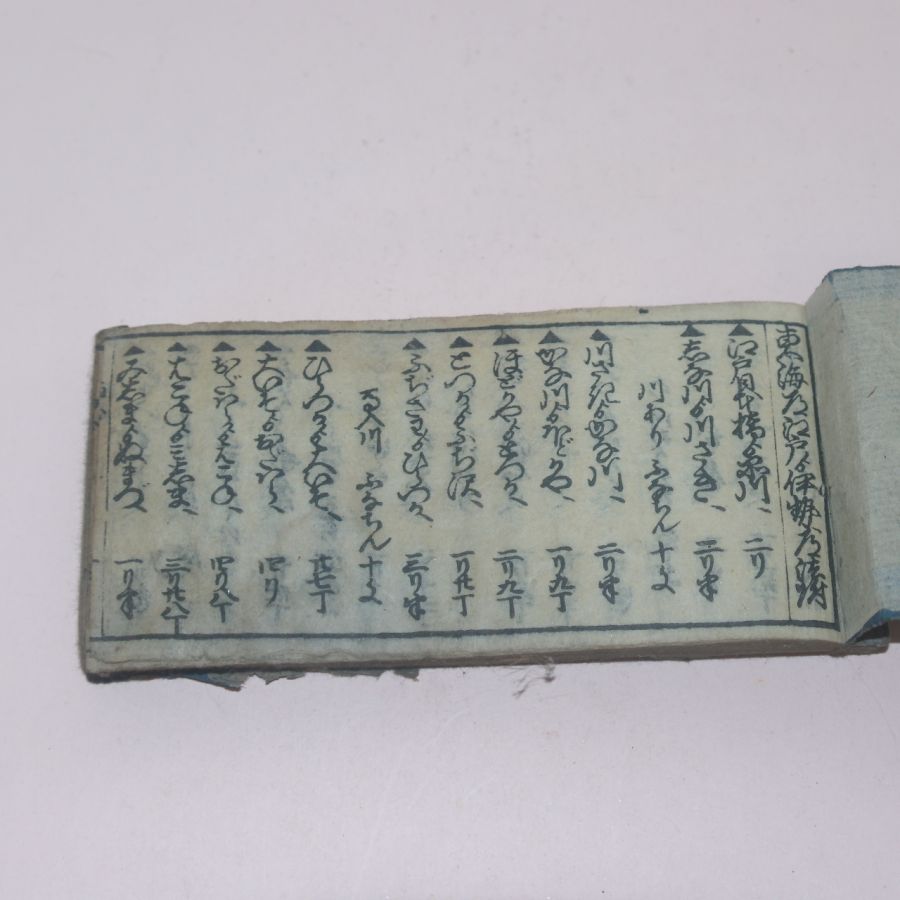 東海道江戸ゟ伊勢道法附
▲江戸日本橋ゟ品川へ 二り
▲志な川ゟ川さきへ 二り半
川あり ふなちん十文
▲川さきゟかな川へ 二り半
▲かな川ゟほどがやへ 一り九丁
▲ほどがやゟとつかへ 二り九丁
▲とつかゟふぢ沢へ 一り卅丁
▲ふぢさわゟひらつかへ 三り半
馬入川 ふなちん十文
▲ひらつかゟ大いそへ 廿七丁
▲大いそゟおだハらへ 四り
▲おだハらゟはこねへ 四り八丁
▲はこねゟ三志まへ 三り廿八丁
▲三志まゟぬまづへ 一り半